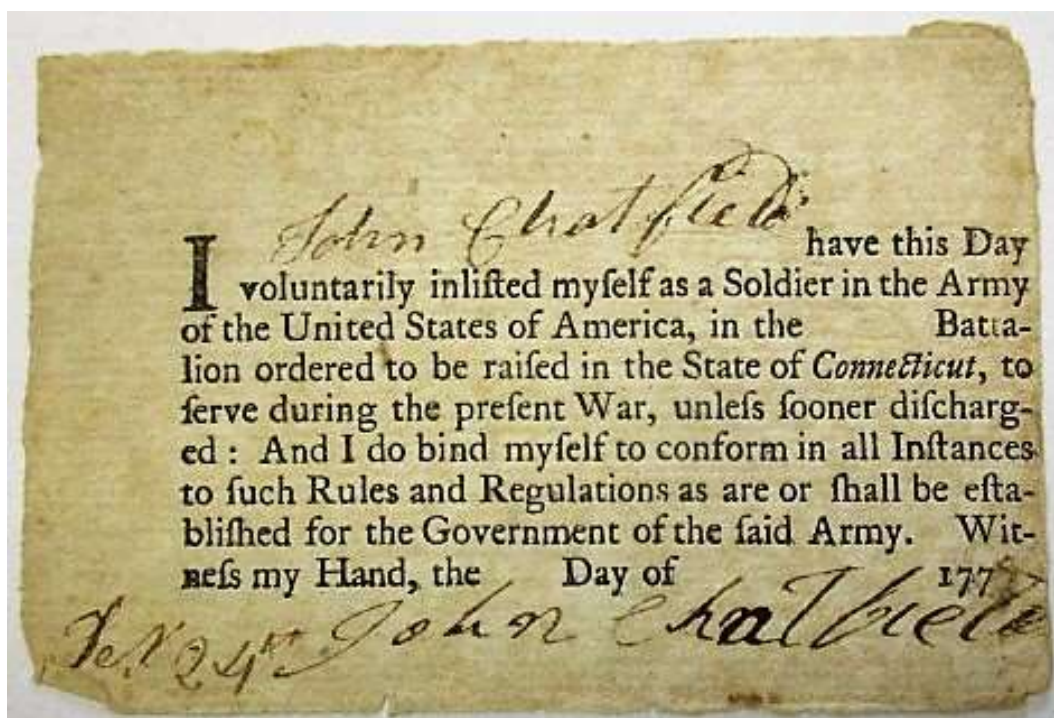 John Chatfield have this Day
I voluntarily inliſted myſelf as a Soldier in the Army
of the United States of America, in the Batta-
lion ordered to be raiſed in the State of Connecticut, to
ſerve during the preſent War, unleſs ſooner diſcharg-
ed : And I do bind myſelf to conform in all Inſtances
to ſuch Rules and Regulations as are or ſhall be eſta-
bliſhed for the Government of the ſaid Army. Wit-
neſs my Hand, the Day of 177
24th John Chatfield